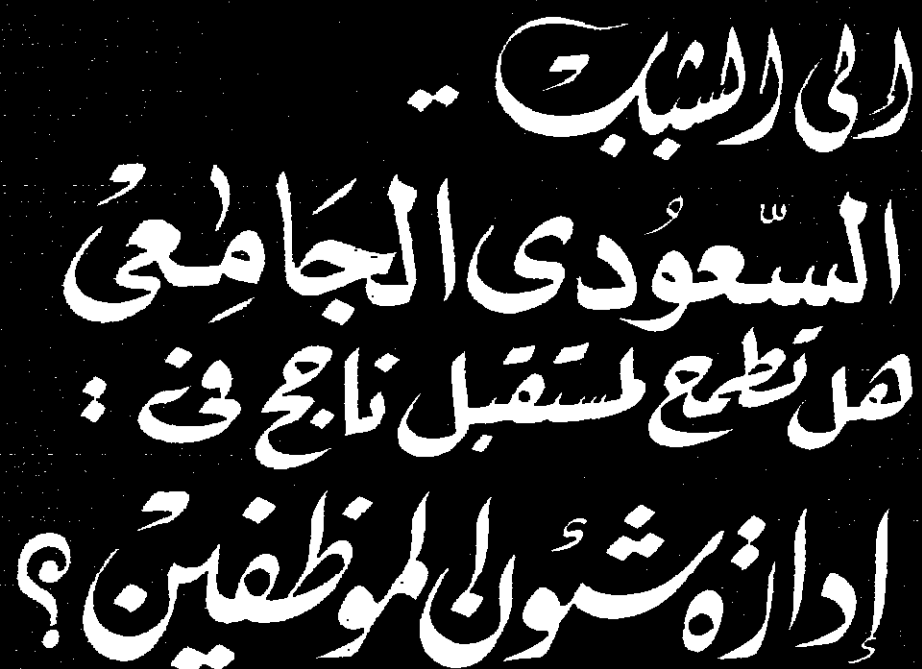 إلى الشباب ..
السّعُودى الجَامِعىْ
هل تطمح لمستقبل ناجح في :
إدارة شئون الموظفين ؟